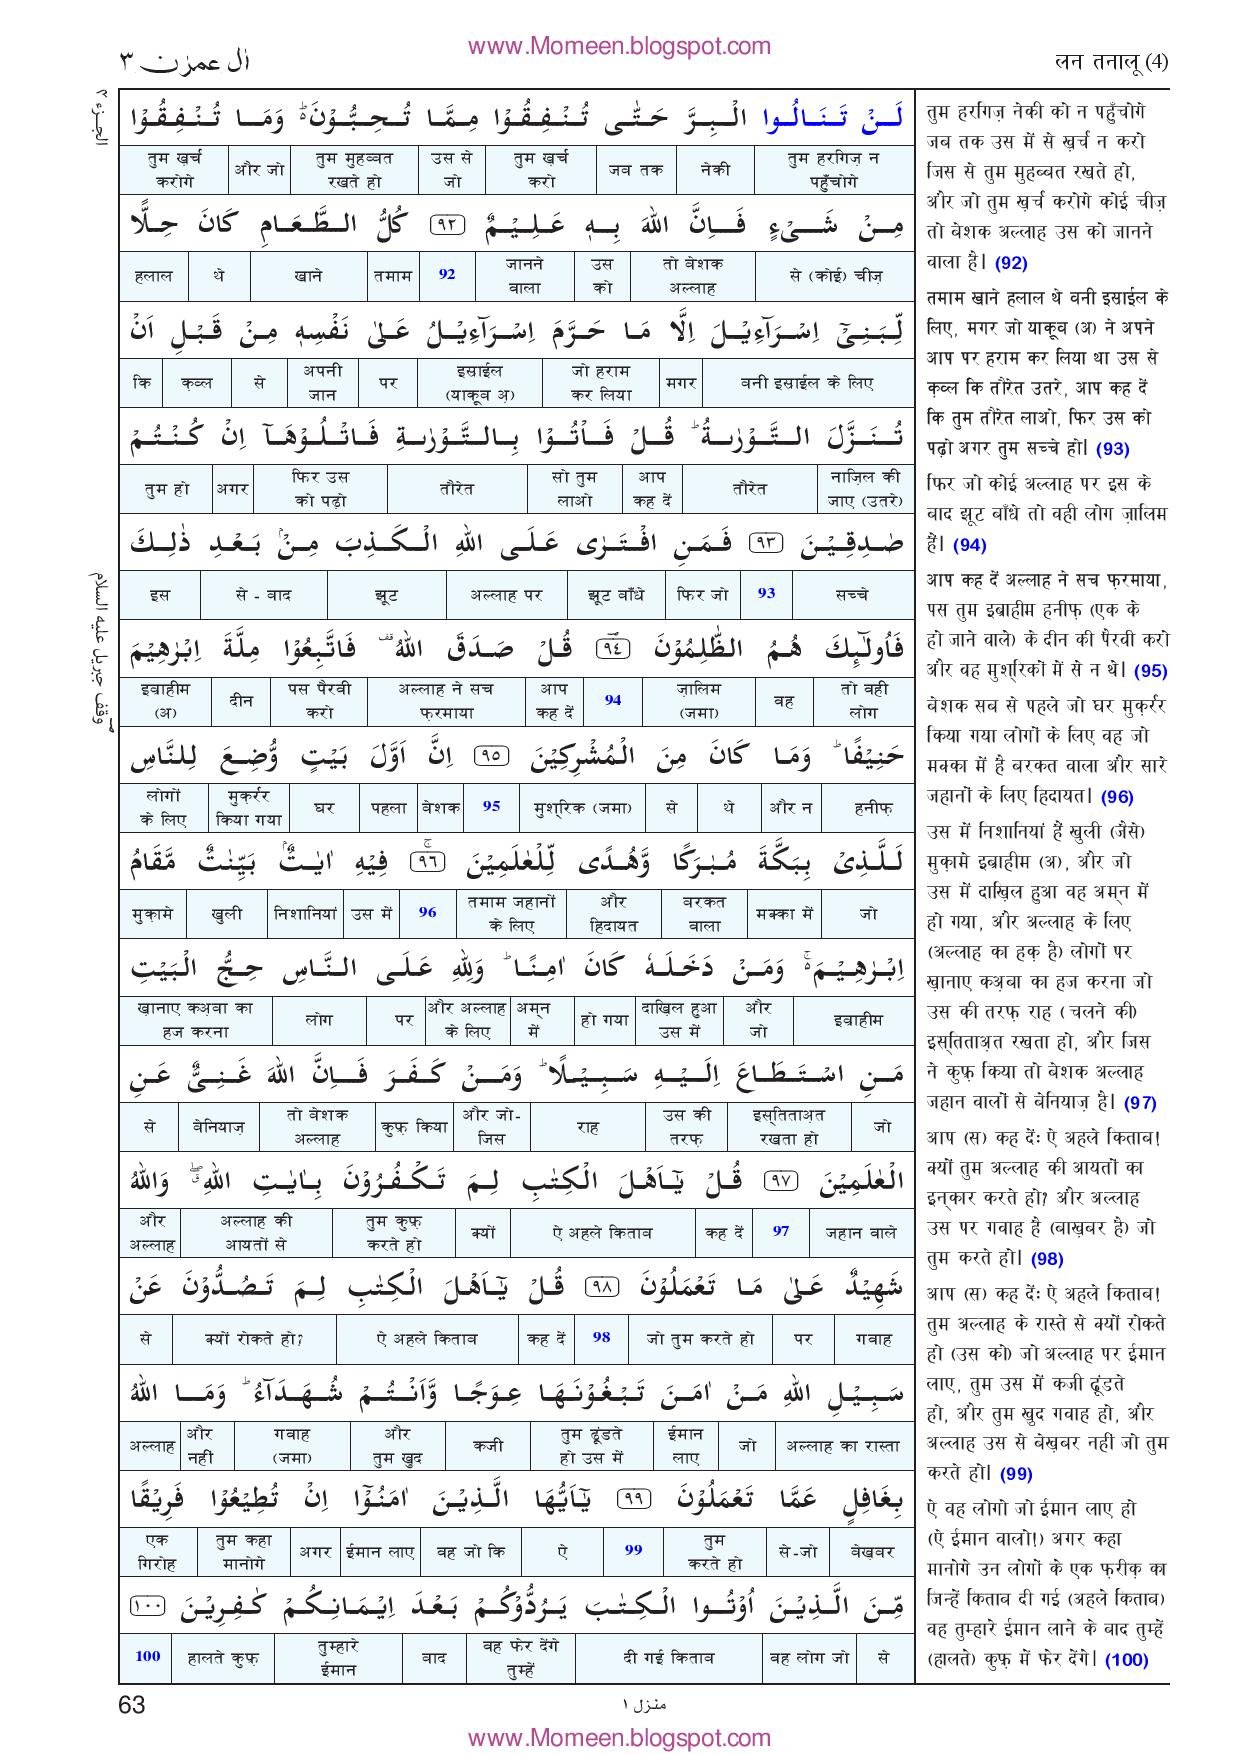 www.Momeen.blogspot.com
लन तनालू (4)
اٰل عمرٰن ٣
لَنْ تَنَالُوا الْبِرَّ حَتّٰى تُنْفِقُوْا مِمَّا تُحِبُّوْنَ ۬ؕ وَمَا تُنْفِقُوْا
तुम हरगिज़ न पहुँचोगे नेकी जब तक तुम ख़र्च करो उस से जो तुम मुहब्बत रखते हो और जो तुम ख़र्च करोगे
مِنْ شَیْءٍ فَاِنَّ اللّٰهَ بِهٖ عَلِیْمٌ ٩٢ كُلُّ الطَّعَامِ كَانَ حِلًّا
से (कोई) चीज़ तो बेशक अल्लाह उस को जानने वाला 92 तमाम खाने थे हलाल
لِّبَنِیْۤ اِسْرَآءِیْلَ اِلَّا مَا حَرَّمَ اِسْرَآءِیْلُ عَلٰى نَفْسِهٖ مِنْ قَبْلِ اَنْ
बनी इस्राईल के लिए मगर जो हराम कर लिया इस्राईल (याकूब अ़) पर अपनी जान से क़ब्ल कि
تُنَزَّلَ التَّوْرٰىةُ ؕ قُلْ فَاْتُوْا بِالتَّوْرٰىةِ فَاتْلُوْهَاۤ اِنْ كُنْتُمْ
नाज़िल की जाए (उतरे) तौरेत आप कह दें सो तुम लाओ तौरेत फिर उस को पढ़ो अगर तुम हो
صٰدِقِیْنَ ٩٣ فَمَنِ افْتَرٰى عَلَى اللّٰهِ الْكَذِبَ مِنْۢ بَعْدِ ذٰلِكَ
सच्चे 93 फिर जो झूट बाँधे अल्लाह पर झूट से - बाद इस
فَاُولٰٓىِٕكَ هُمُ الظّٰلِمُوْنَ ٩٤ قُلْ صَدَقَ اللّٰهُ ۫ فَاتَّبِعُوْا مِلَّةَ اِبْرٰهِیْمَ
तो वही लोग वह ज़ालिम (जमा) 94 आप कह दें अल्लाह ने सच फ़रमाया पस पैरवी करो दीन इब्राहीम (अ)
حَنِیْفًا ؕ وَمَا كَانَ مِنَ الْمُشْرِكِیْنَ ٩٥ اِنَّ اَوَّلَ بَیْتٍ وُّضِعَ لِلنَّاسِ
हनीफ़ और न थे से मुश्रिक (जमा) 95 बेशक पहला घर मुक़र्रर किया गया लोगों के लिए
لَلَّذِیْ بِبَكَّةَ مُبٰرَكًا وَّهُدًى لِّلْعٰلَمِیْنَ ٩٦ فِیْهِ اٰیٰتٌۢ بَیِّنٰتٌ مَّقَامُ
जो मक्का में बरकत वाला और हिदायत तमाम जहानों के लिए 96 उस में निशानियां खुली मुक़ामे
اِبْرٰهِیْمَ ۬ۚ وَمَنْ دَخَلَهٗ كَانَ اٰمِنًا ؕ وَلِلّٰهِ عَلَى النَّاسِ حِجُّ الْبَیْتِ
इब्राहीम और जो दाख़िल हुआ उस में हो गया अम्न में और अल्लाह के लिए पर लोग ख़ानाए कअ़बा का हज करना
مَنِ اسْتَطَاعَ اِلَیْهِ سَبِیْلًا ؕ وَمَنْ كَفَرَ فَاِنَّ اللّٰهَ غَنِیٌّ عَنِ
जो इस्तिताअ़त रखता हो उस की तरफ़ राह और जो-जिस कुफ़्र किया तो बेशक अल्लाह बेनियाज़ से
الْعٰلَمِیْنَ ٩٧ قُلْ یٰۤاَهْلَ الْكِتٰبِ لِمَ تَكْفُرُوْنَ بِاٰیٰتِ اللّٰهِ ۖۗ وَاللّٰهُ
जहान वाले 97 कह दें ऐ अहले किताब क्यों तुम कुफ़्र करते हो अल्लाह की आयतों से और अल्लाह
شَهِیْدٌ عَلٰى مَا تَعْمَلُوْنَ ٩٨ قُلْ یٰۤاَهْلَ الْكِتٰبِ لِمَ تَصُدُّوْنَ عَنْ
गवाह पर जो तुम करते हो 98 कह दें ऐ अहले किताब क्यों रोकते हो? से
سَبِیْلِ اللّٰهِ مَنْ اٰمَنَ تَبْغُوْنَهَا عِوَجًا وَّاَنْتُمْ شُهَدَآءُ ؕ وَمَا اللّٰهُ
अल्लाह का रास्ता जो ईमान लाए तुम ढूंडते हो उस में कजी और तुम खुद गवाह (जमा) और नहीं अल्लाह
بِغَافِلٍ عَمَّا تَعْمَلُوْنَ ٩٩ یٰۤاَیُّهَا الَّذِیْنَ اٰمَنُوْۤا اِنْ تُطِیْعُوْا فَرِیْقًا
बेख़बर से-जो तुम करते हो 99 ऐ वह जो कि ईमान लाए अगर तुम कहा मानोगे एक गिरोह
مِّنَ الَّذِیْنَ اُوْتُوا الْكِتٰبَ یَرُدُّوْكُمْ بَعْدَ اِیْمَانِكُمْ كٰفِرِیْنَ ١٠٠
से वह लोग जो दी गई किताब वह फेर देंगे तुम्हें बाद तुम्हारे ईमान हालते कुफ़्र 100
तुम हरगिज़ नेकी को न पहुँचोगे
जब तक उस में से ख़र्च न करो
जिस से तुम मुहब्बत रखते हो,
और जो तुम ख़र्च करोगे कोई चीज़
तो बेशक अल्लाह उस को जानने
वाला है। (92)
तमाम खाने हलाल थे बनी इस्राईल के
लिए, मगर जो याकूब (अ) ने अपने
आप पर हराम कर लिया था उस से
क़ब्ल कि तौरेत उतरे, आप कह दें
कि तुम तौरेत लाओ, फिर उस को
पढ़ो अगर तुम सच्चे हो। (93)
फिर जो कोई अल्लाह पर इस के
बाद झूट बाँधे तो वही लोग ज़ालिम
हैं। (94)
आप कह दें अल्लाह ने सच फ़रमाया,
पस तुम इब्राहीम हनीफ़ (एक के
हो जाने वाले) के दीन की पैरवी करो
और वह मुश्रिकों में से न थे। (95)
बेशक सब से पहले जो घर मुक़र्रर
किया गया लोगों के लिए वह जो
मक्का में है बरकत वाला और सारे
जहानों के लिए हिदायत। (96)
उस में निशानियां हैं खुली (जैसे)
मुक़ामे इब्राहीम (अ), और जो
उस में दाख़िल हुआ वह अम्न में
हो गया, और अल्लाह के लिए
(अल्लाह का हक़ है) लोगों पर
ख़ानाए कअ़बा का हज करना जो
उस की तरफ़ राह (चलने की)
इस्तिताअ़त रखता हो, और जिस
ने कुफ़्र किया तो बेशक अल्लाह
जहान वालों से बेनियाज़ है। (97)
आप (स) कह दें: ऐ अहले किताब!
क्यों तुम अल्लाह की आयतों का
इन्कार करते हो? और अल्लाह
उस पर गवाह है (बाख़बर है) जो
तुम करते हो। (98)
आप (स) कह दें: ऐ अहले किताब!
तुम अल्लाह के रास्ते से क्यों रोकते
हो (उस को) जो अल्लाह पर ईमान
लाए, तुम उस में कजी ढूंडते
हो, और तुम खुद गवाह हो, और
अल्लाह उस से बेख़बर नहीं जो तुम
करते हो। (99)
ऐ वह लोगो जो ईमान लाए हो
(ऐ ईमान वालो!) अगर कहा
मानोगे उन लोगों के एक फ़रीक़ का
जिन्हें किताब दी गई (अहले किताब)
वह तुम्हारे ईमान लाने के बाद तुम्हें
(हालते) कुफ़्र में फेर देंगे। (100)
وقف جبریل علیه السلام
63
منزل ١
www.Momeen.blogspot.com